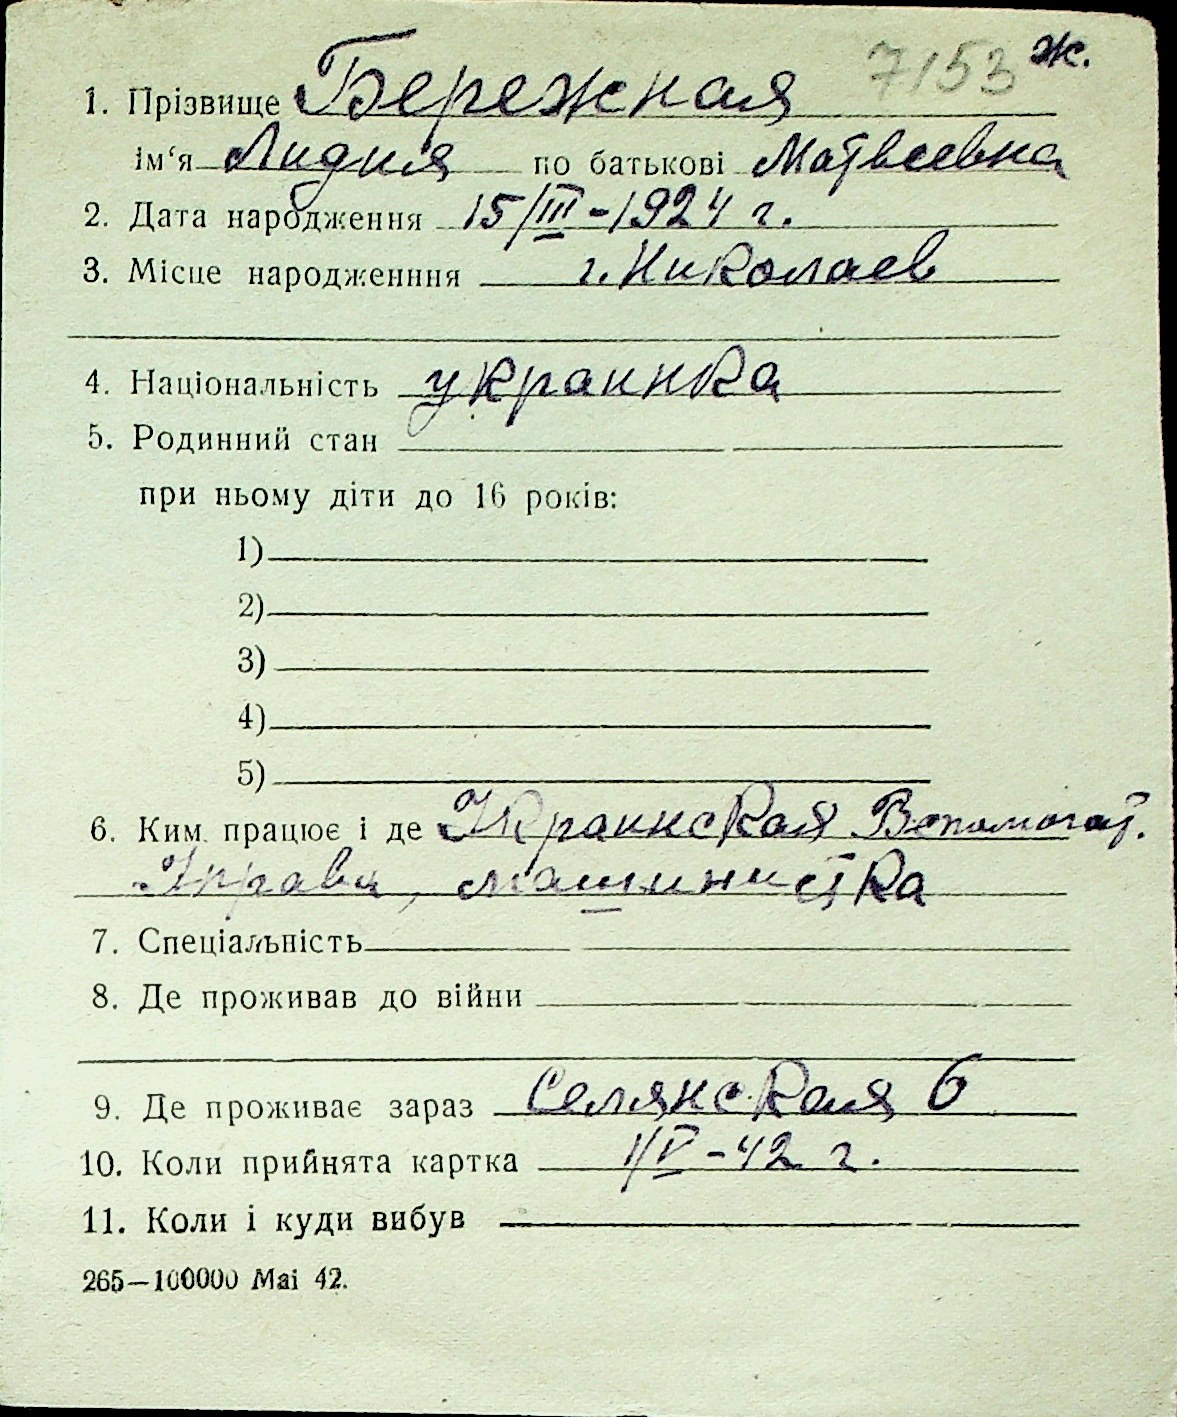 7153 ж.
1. Прізвище Бережная
ім‘я Лидия по батькові Матвеевна
2. Дата народження 15/III-1924 г.
3. Місце народженння г. Николаев
4. Національність украинка
5. Родинний стан
при ньому діти до 16 років:
1)
2)
3)
4)
5)
6. Ким працює і де Украинская Вспомогат.
Управа, машинистка
7. Спеціальність
8. Де проживав до війни
9. Де проживає зараз Селянская 6
10. Коли прийнята картка 1/V-42 г.
11. Коли і куди вибув
265—100000 Mai 42.